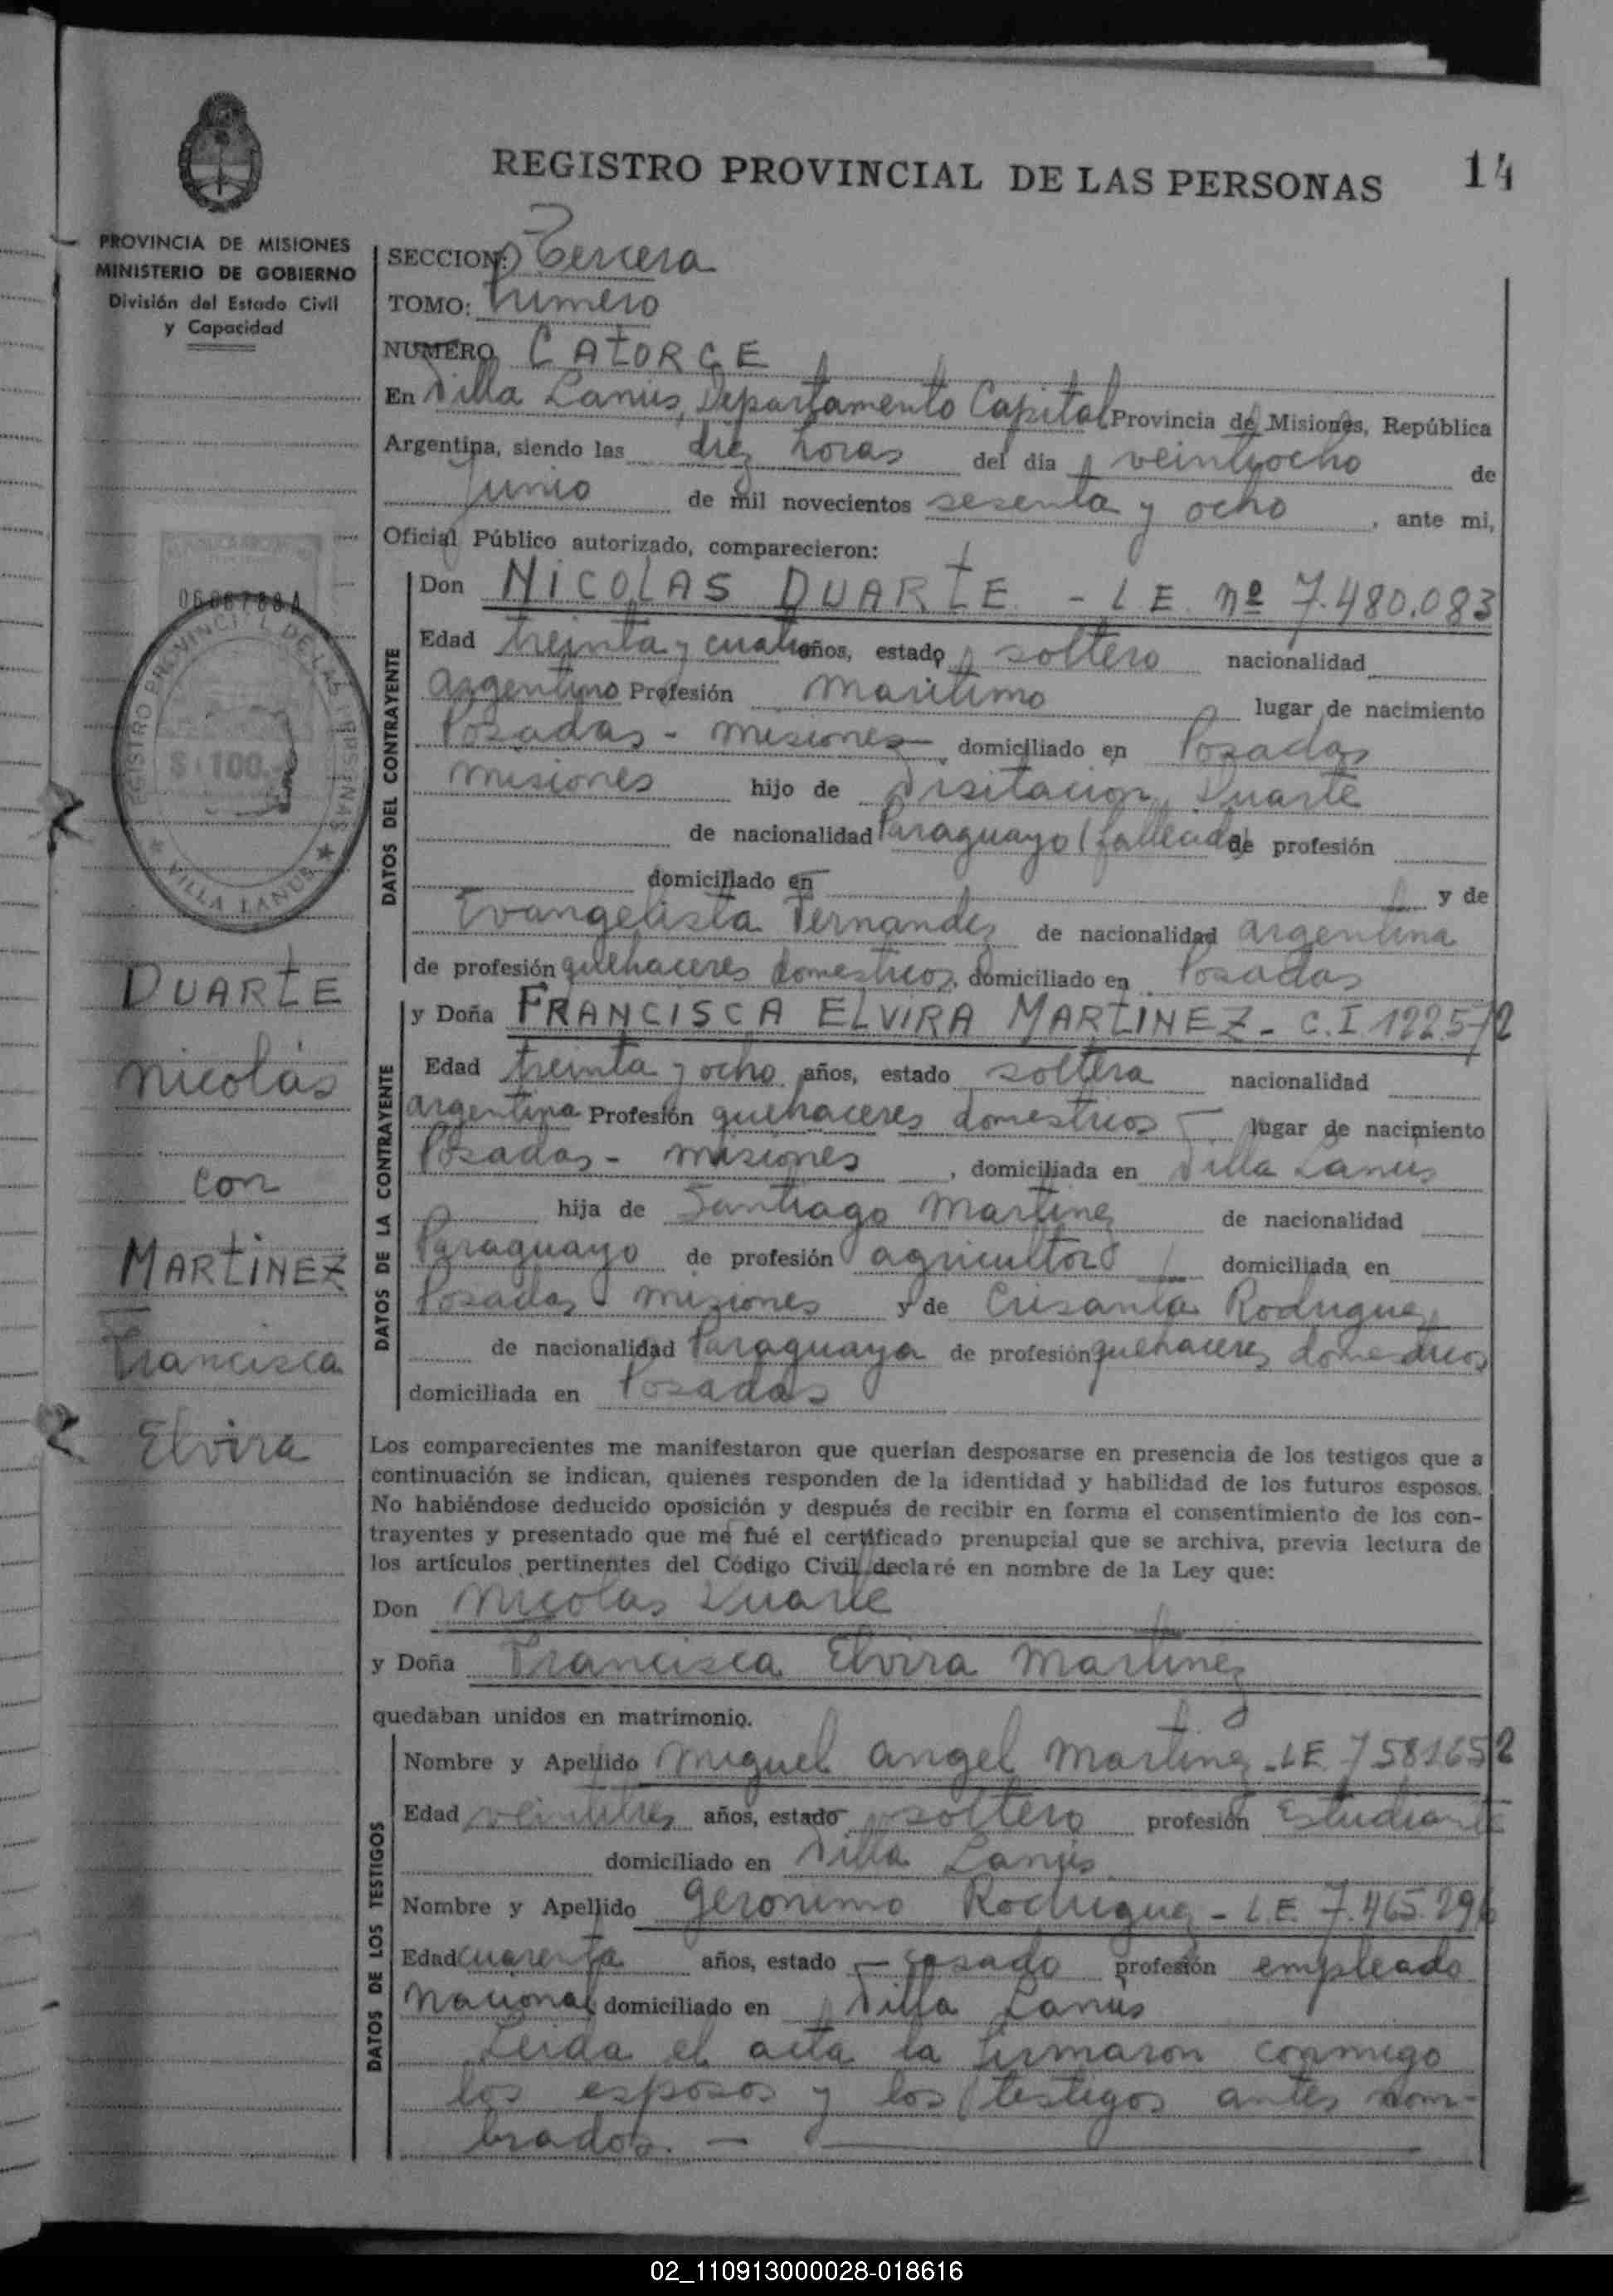 REGISTRO PROVINCIAL DE LAS PERSONAS
14
PROVINCIA DE MISIONES
MINISTERIO DE GOBIERNO
División del Estado Civil
y Capacidad
SECCION: Tercera
TOMO: Primero
NUMERO CATORCE
En Villa Lanús, Departamento Capital Provincia de Misiones, República
Argentina, siendo las diez horas del día veintiocho de
Junio de mil novecientos sesenta y ocho, ante mi,
Oficial Público autorizado, comparecieron:
DATOS DEL CONTRAYENTE
Don NICOLAS DUARTE - L E. nº 7.480.083
Edad treinta y cuatro años, estado soltero nacionalidad
argentino Profesión marítimo lugar de nacimiento
Posadas - misiones domiciliado en Posadas
misiones hijo de Visitacion Duarte
de nacionalidad Paraguayo (fallecido) de profesión
domiciliado en y de
Evangelista Fernandez de nacionalidad argentina
de profesión quehaceres domesticos, domiciliado en Posadas
DATOS DE LA CONTRAYENTE
y Doña FRANCISCA ELVIRA MARTINEZ - C. I 122.572
Edad treinta y ocho años, estado soltera nacionalidad
argentina Profesión quehaceres domesticos lugar de nacimiento
Posadas - misiones, domiciliada en Villa Lanús
hija de Santiago Martinez de nacionalidad
Paraguayo de profesión agricultor domiciliada en
Posadas - misiones y de Crisanta Rodriguez
de nacionalidad Paraguaya de profesión quehaceres domesticos
domiciliada en Posadas
Los comparecientes me manifestaron que querían desposarse en presencia de los testigos que a
continuación se indican, quienes responden de la identidad y habilidad de los futuros esposos.
No habiéndose deducido oposición y después de recibir en forma el consentimiento de los con-
trayentes y presentado que me fué el certificado prenupcial que se archiva, previa lectura de
los artículos pertinentes del Código Civil declaré en nombre de la Ley que:
Don Nicolas Duarte
y Doña Francisca Elvira Martinez
quedaban unidos en matrimonio.
DATOS DE LOS TESTIGOS
Nombre y Apellido Miguel angel Martinez - LE 7581652
Edad veintitres años, estado soltero profesión Estudiante
domiciliado en Villa Lanús
Nombre y Apellido Geronimo Rodriguez - L.E. 7.465.296
Edad cuarenta años, estado casado profesión empleado
nacional domiciliado en Villa Lanús
Leida el acta la firmaron conmigo
los esposos y los testigos antes nom-
brados. —
REGISTRO PROVINCIAL DE LAS PERSONAS
$ 100.-
VILLA LANUS
DUARTE
Nicolás
con
MARTINEZ
Francisca
Elvira
02_110913000028-018616